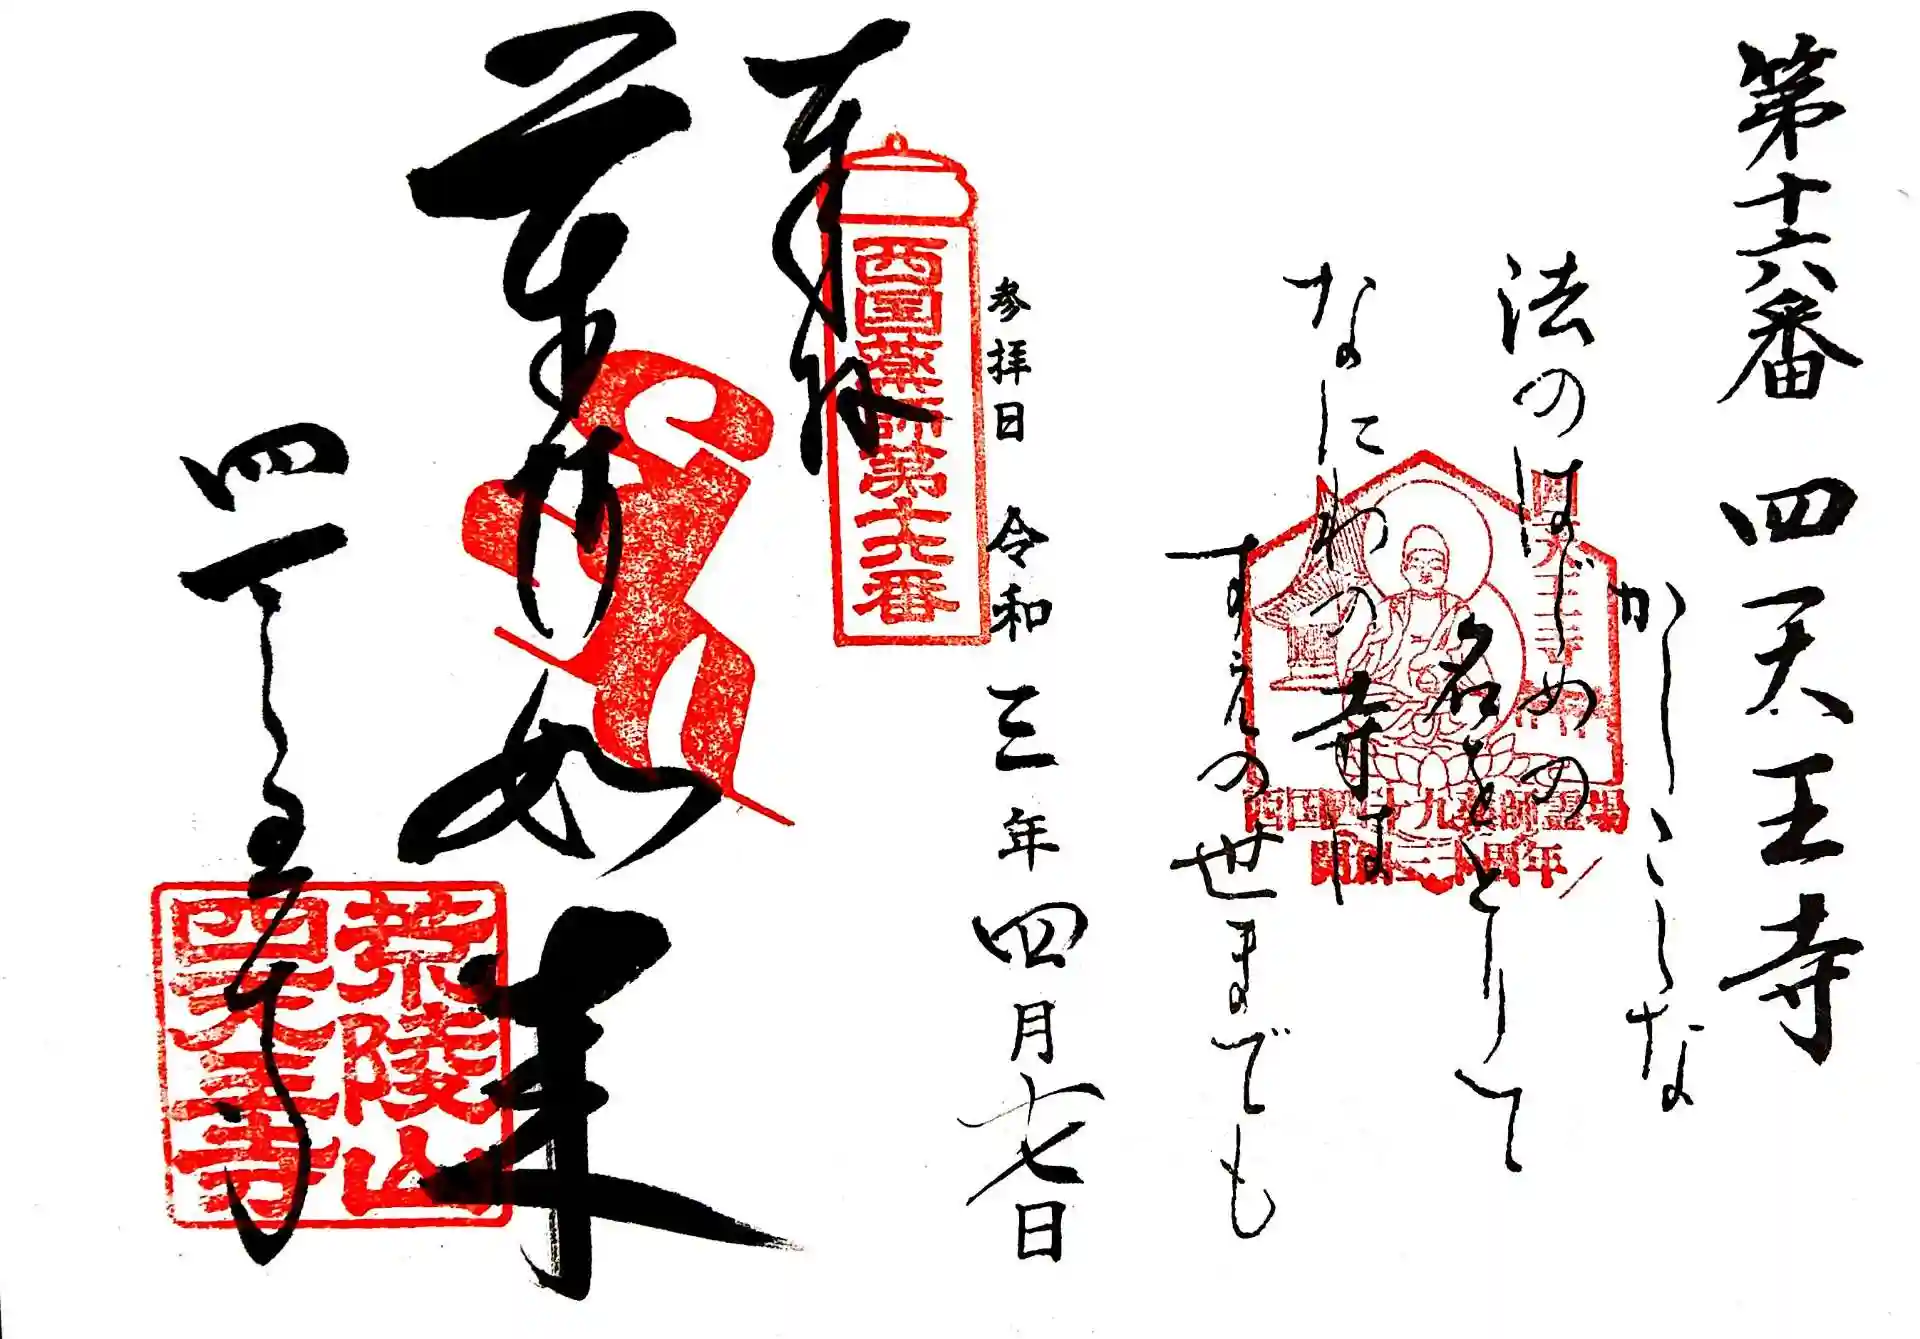 第十六番 四天王寺
かしこしな
法のはじめの
名をとりて
なにわの寺は
すえの世までも
四天王寺
西国四十九薬師霊場
参拝日 令和三年四月十七日
奉拝
西国薬師第十六番
薬師如来
四天王寺
荒陵山
四天王寺